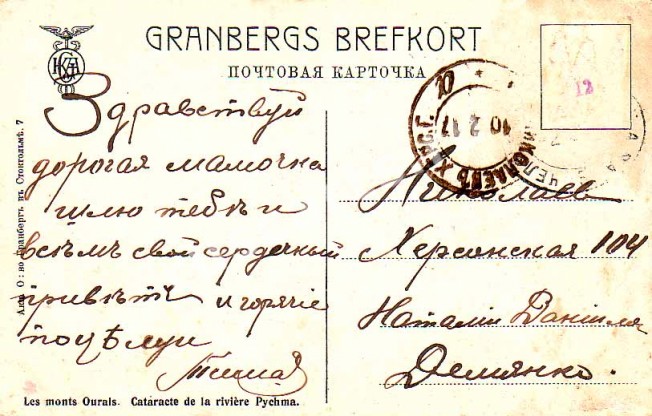 GRANBERGS BREFKORT
ПОЧТОВАЯ КАРТОЧКА
Здравствуй
дорогая мамочка
шлю тебѣ и
всѣмъ свой сердечный
привѣтъ и горячіе
поцѣлуи
Николаев
Херсонская 104
Наталіи
Демянко.
НИКОЛАЕВЪ ХЕРС.Г.
10 2 17
ЧЕЛЯ
12
Акц. О: во Гранбергъ въ Стокгольмѣ. 7
Les monts Ourals. Cataracte de la rivière Pychma.